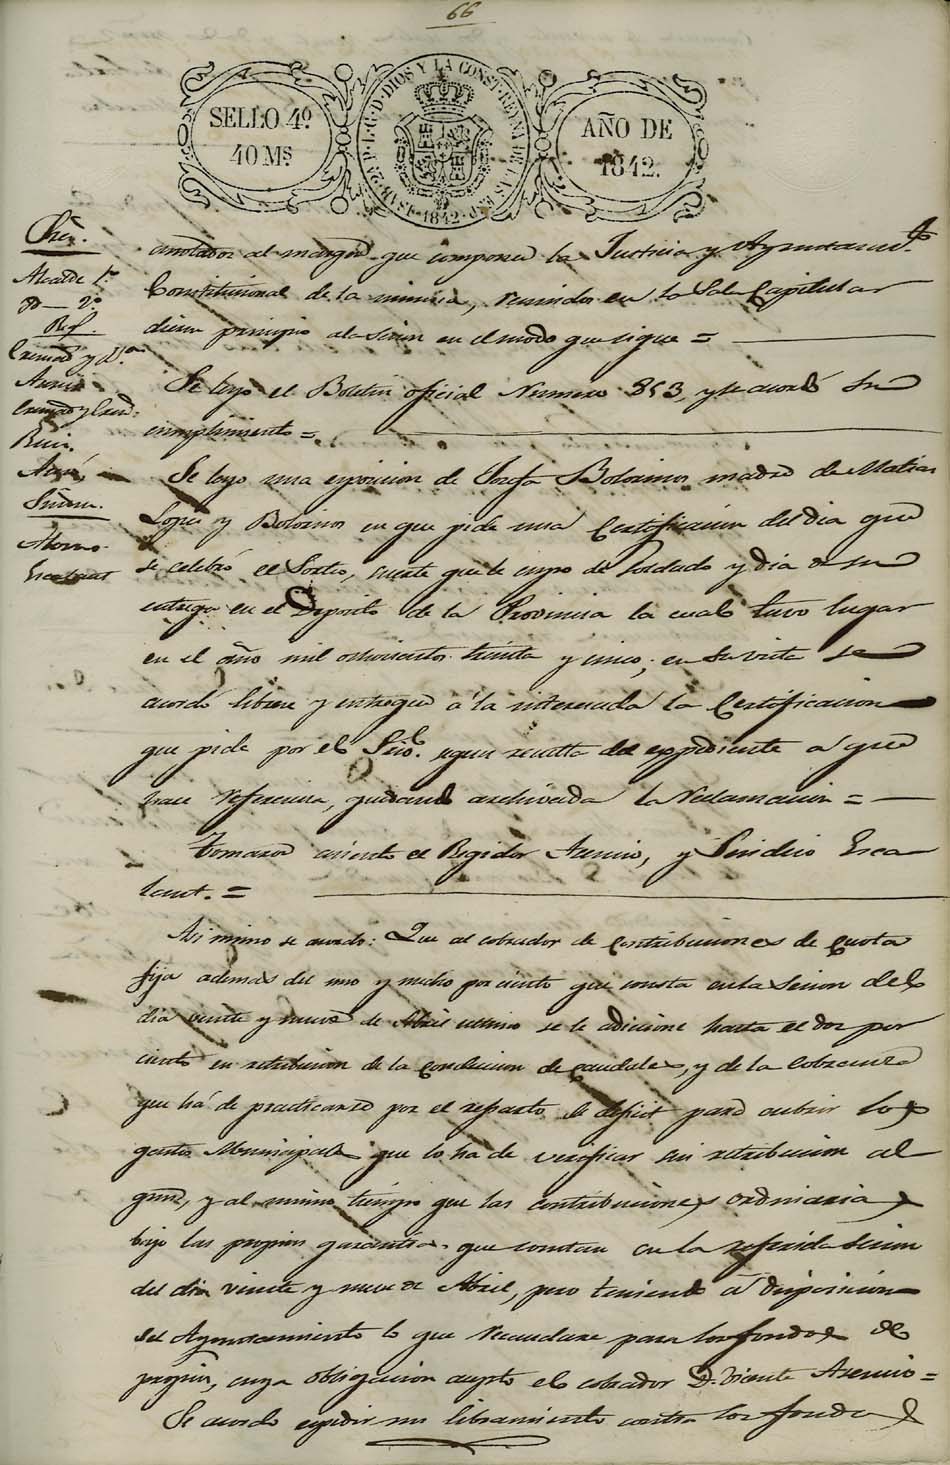 66
SELLO 4º
40 Ms
ISAB. 2ª P. L. G. D. DIOS Y LA CONST. REYNA DE LAS ESP. 1842
AÑO DE
1842.
Alcalde 1º
Id — 2º
Rex.
Asensio
Ruiz.
Sindicos.
Alonso
Escolant
anotados al margen que componen la Justicia y Ayuntamtº
Constitucional de la misma, reunidos en la Sala Capitular
dieron principio a la Sesion en el modo que sigue =
Se leyo el Boletin oficial Numero 853, y se acordó su
cumplimiento =
Se leyo una exposicion de Josefa Bolvinos madre de Matias
Lopez y Bolvinos en que pide una Certificacion del dia que
se celebró el Sorteo, suerte que le cupo de Soldado y dia de su
entrega en el Deposito de la Provincia la cual tuvo lugar
en el año mil ochocientos treinta y cinco; en su vista se
acordó librese y entregue á la interesada la Certificacion
que pide por el Srio. segun resulta del expediente a que
hace referencia, quedando archivada la Reclamacion =
Tomaron asiento el Regidor Asensio, y Sindico Esco
lant. =
Asi mismo se acordó: Que al cobrador de Contribuciones de Cuota
fija ademas del uno y medio por ciento que consta en la Sesion del
dia veinte y nueve de Abril ultimo se le adicione hasta el dos por
ciento en retribucion de la Conduccion de Caudales, y de la Cobranza
que há de practicarse por el reparto de deficit para cubrir los
gastos Municipales que lo ha de verificar sin retribucion al
guna, y al mismo tiempo que las contribuciones ordinarias
bajo las propias garantias que constan en la referida Sesion
del dia veinte y nueve de Abril, pero teniendo á disposicion
del Ayuntamiento lo que recaudare para los fondos de
propios, cuya obligacion acepto el cobrador D. Vicente Asensio =
Se acordo expedir un libramiento contra los fondos